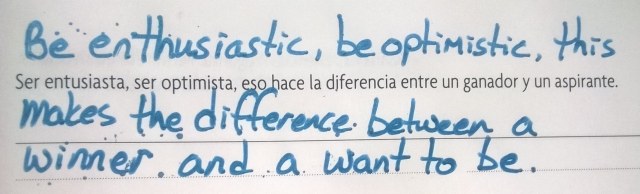 Be enthusiastic, be optimistic, this
Ser entusiasta, ser optimista, eso hace la diferencia entre un ganador y un aspirante.
makes the difference between a
winner. and a want to be.